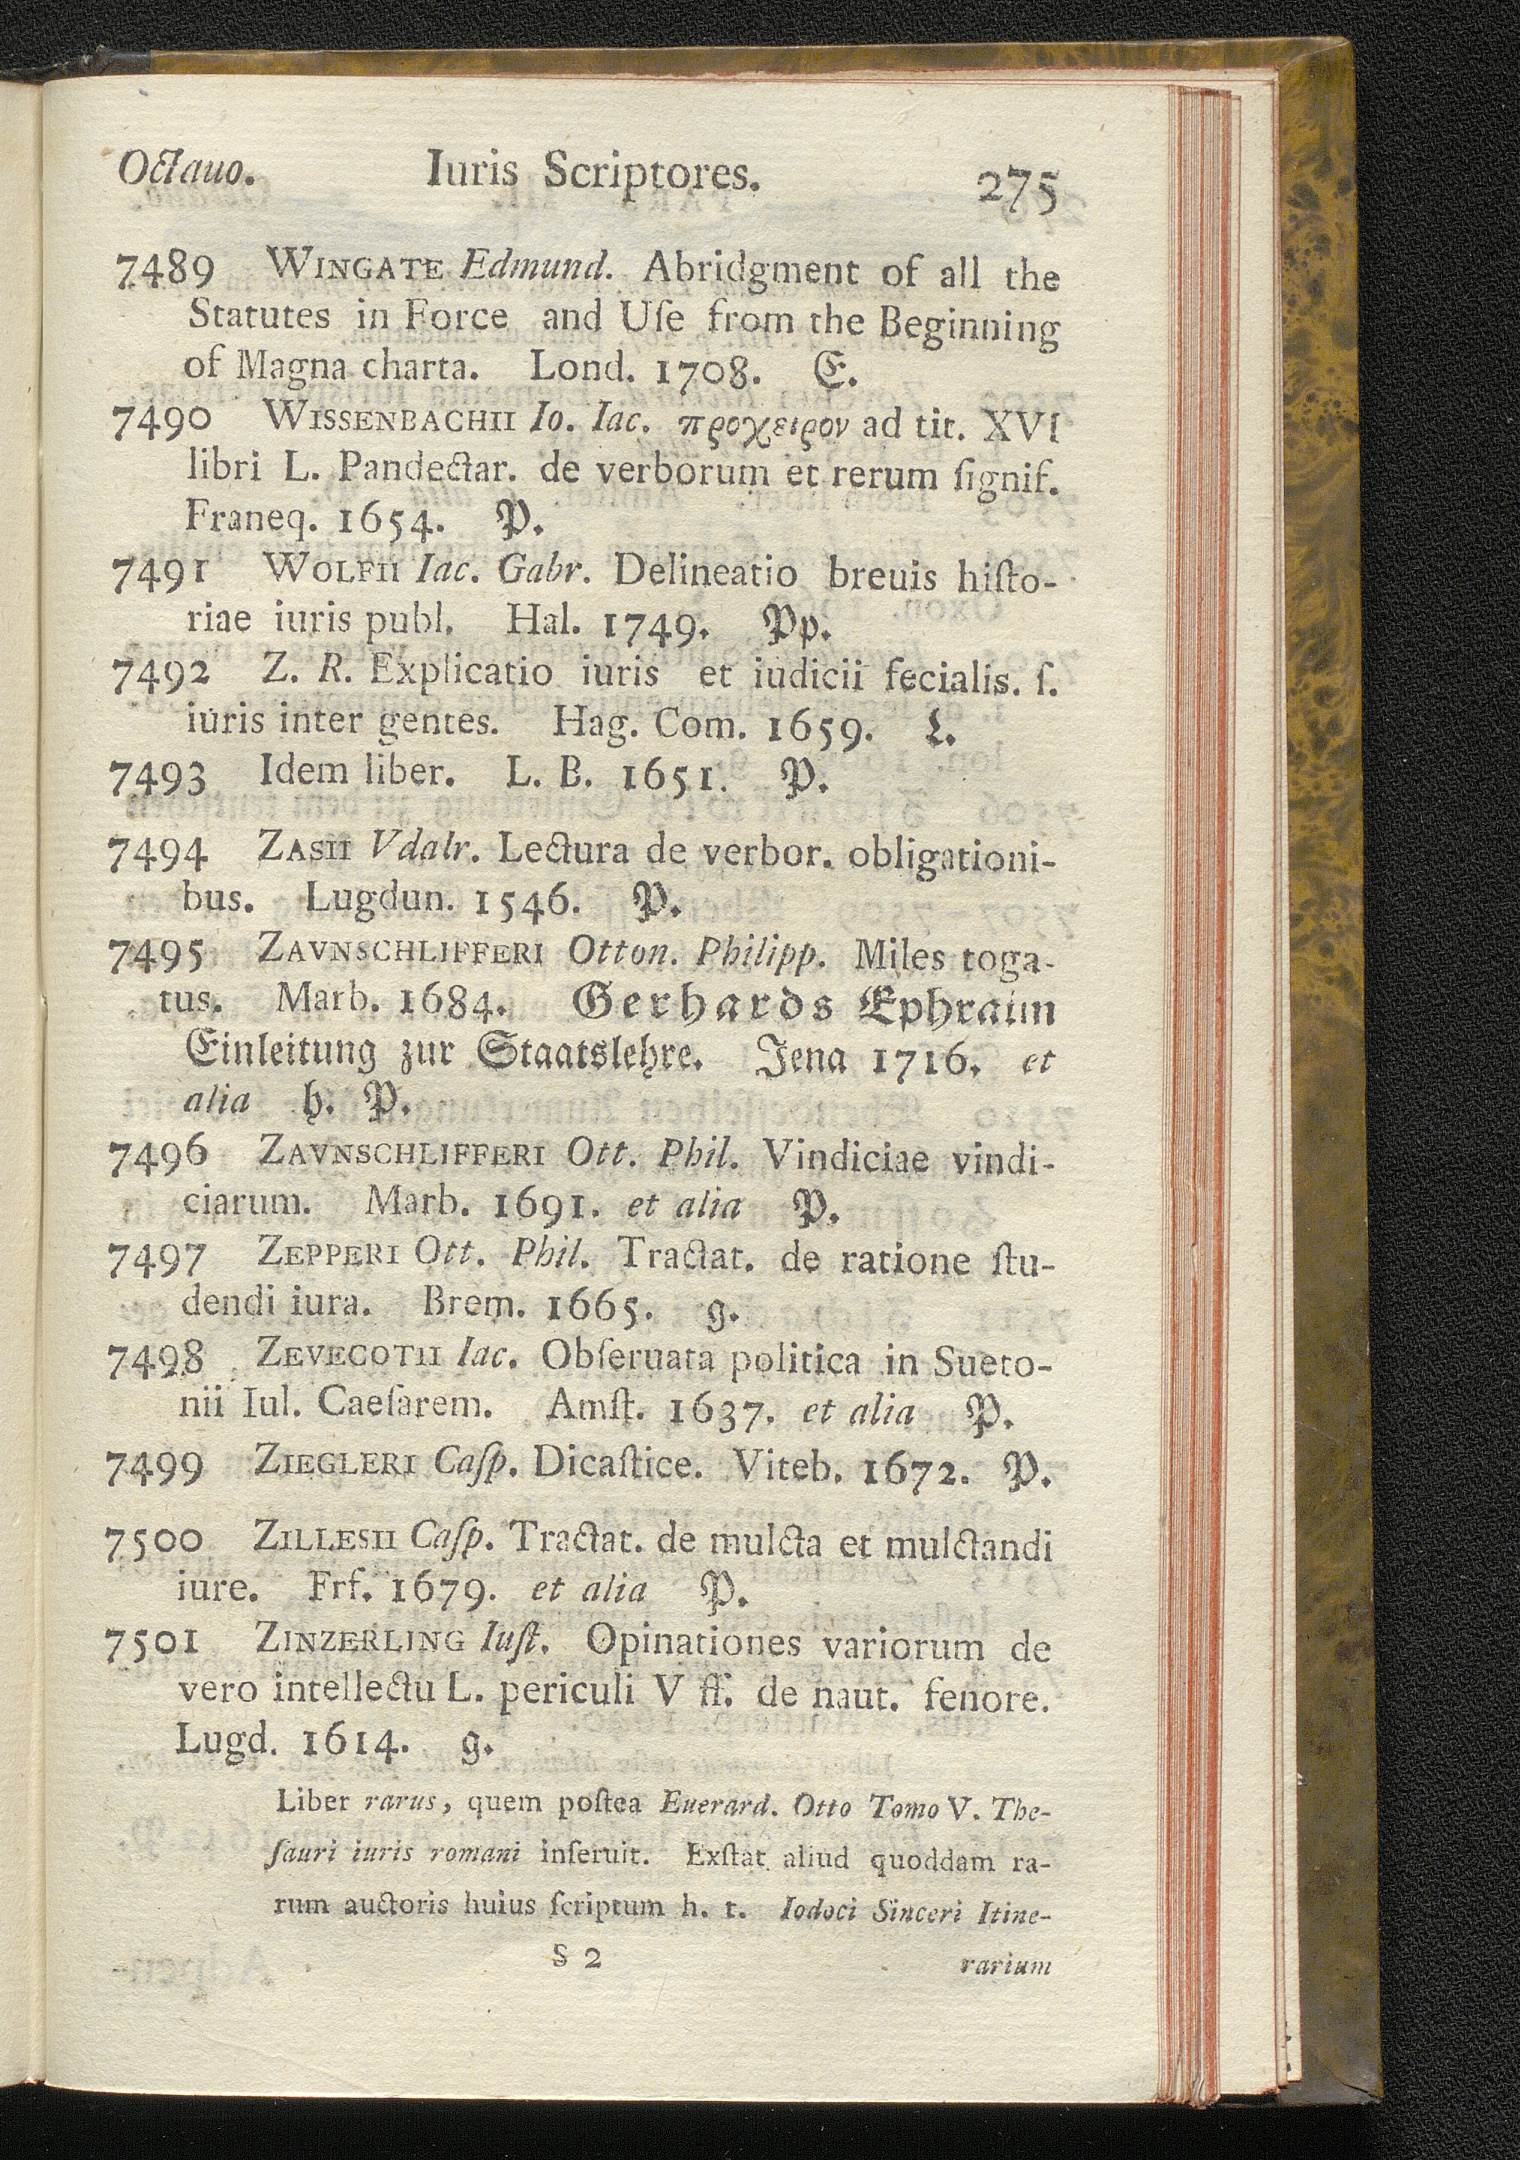 Octauo. Iuris Scriptores. 275
7489 WINGATE Edmund. Abridgment of all the
Statutes in Force and Uſe from the Beginning
of Magna charta. Lond. 1708. E.
7490 WISSENBACHII Io. Iac. προχειρον ad tit. XVI
libri L. Pandectar. de verborum et rerum ſignif.
Franeq. 1654. P.
7491 WOLFII Iac. Gabr. Delineatio breuis hiſto-
riae iuris publ. Hal. 1749. Pp.
7492 Z. R. Explicatio iuris et iudicii fecialis. ſ.
iuris inter gentes. Hag. Com. 1659. L.
7493 Idem liber. L. B. 1651. P.
7494 ZASII Vdalr. Lectura de verbor. obligationi-
bus. Lugdun. 1546. P.
7495 ZAVNSCHLIFFERI Otton. Philipp. Miles toga-
tus. Marb. 1684. Gerhards Ephraim
Einleitung zur Staatslehre. Jena 1716. et
alia h. P.
7496 ZAVNSCHLIFFERI Ott. Phil. Vindiciae vindi-
ciarum. Marb. 1691. et alia P.
7497 ZEPPERI Ott. Phil. Tractat. de ratione ſtu-
dendi iura. Brem. 1665. g.
7498 ZEVECOTII Iac. Obſeruata politica in Sueto-
nii Iul. Caeſarem. Amſt. 1637. et alia P.
7499 ZIEGLERI Caſp. Dicaſtice. Viteb. 1672. P.
7500 ZILLESII Caſp. Tractat. de mulcta et mulctandi
iure. Frf. 1679. et alia P.
7501 ZINZERLING Iuſt. Opinationes variorum de
vero intellectu L. periculi V ff. de naut. fenore.
Lugd. 1614. g.
Liber rarus, quem poſtea Euerard. Otto Tomo V. The-
ſauri iuris romani inſeruit. Exſtat aliud quoddam ra-
rum auctoris huius ſcriptum h. t. Iodoci Sinceri Itine-
S 2 rarium